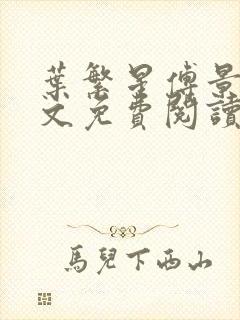 葉繁星傅景
文免費閱讀
馬兒下西山